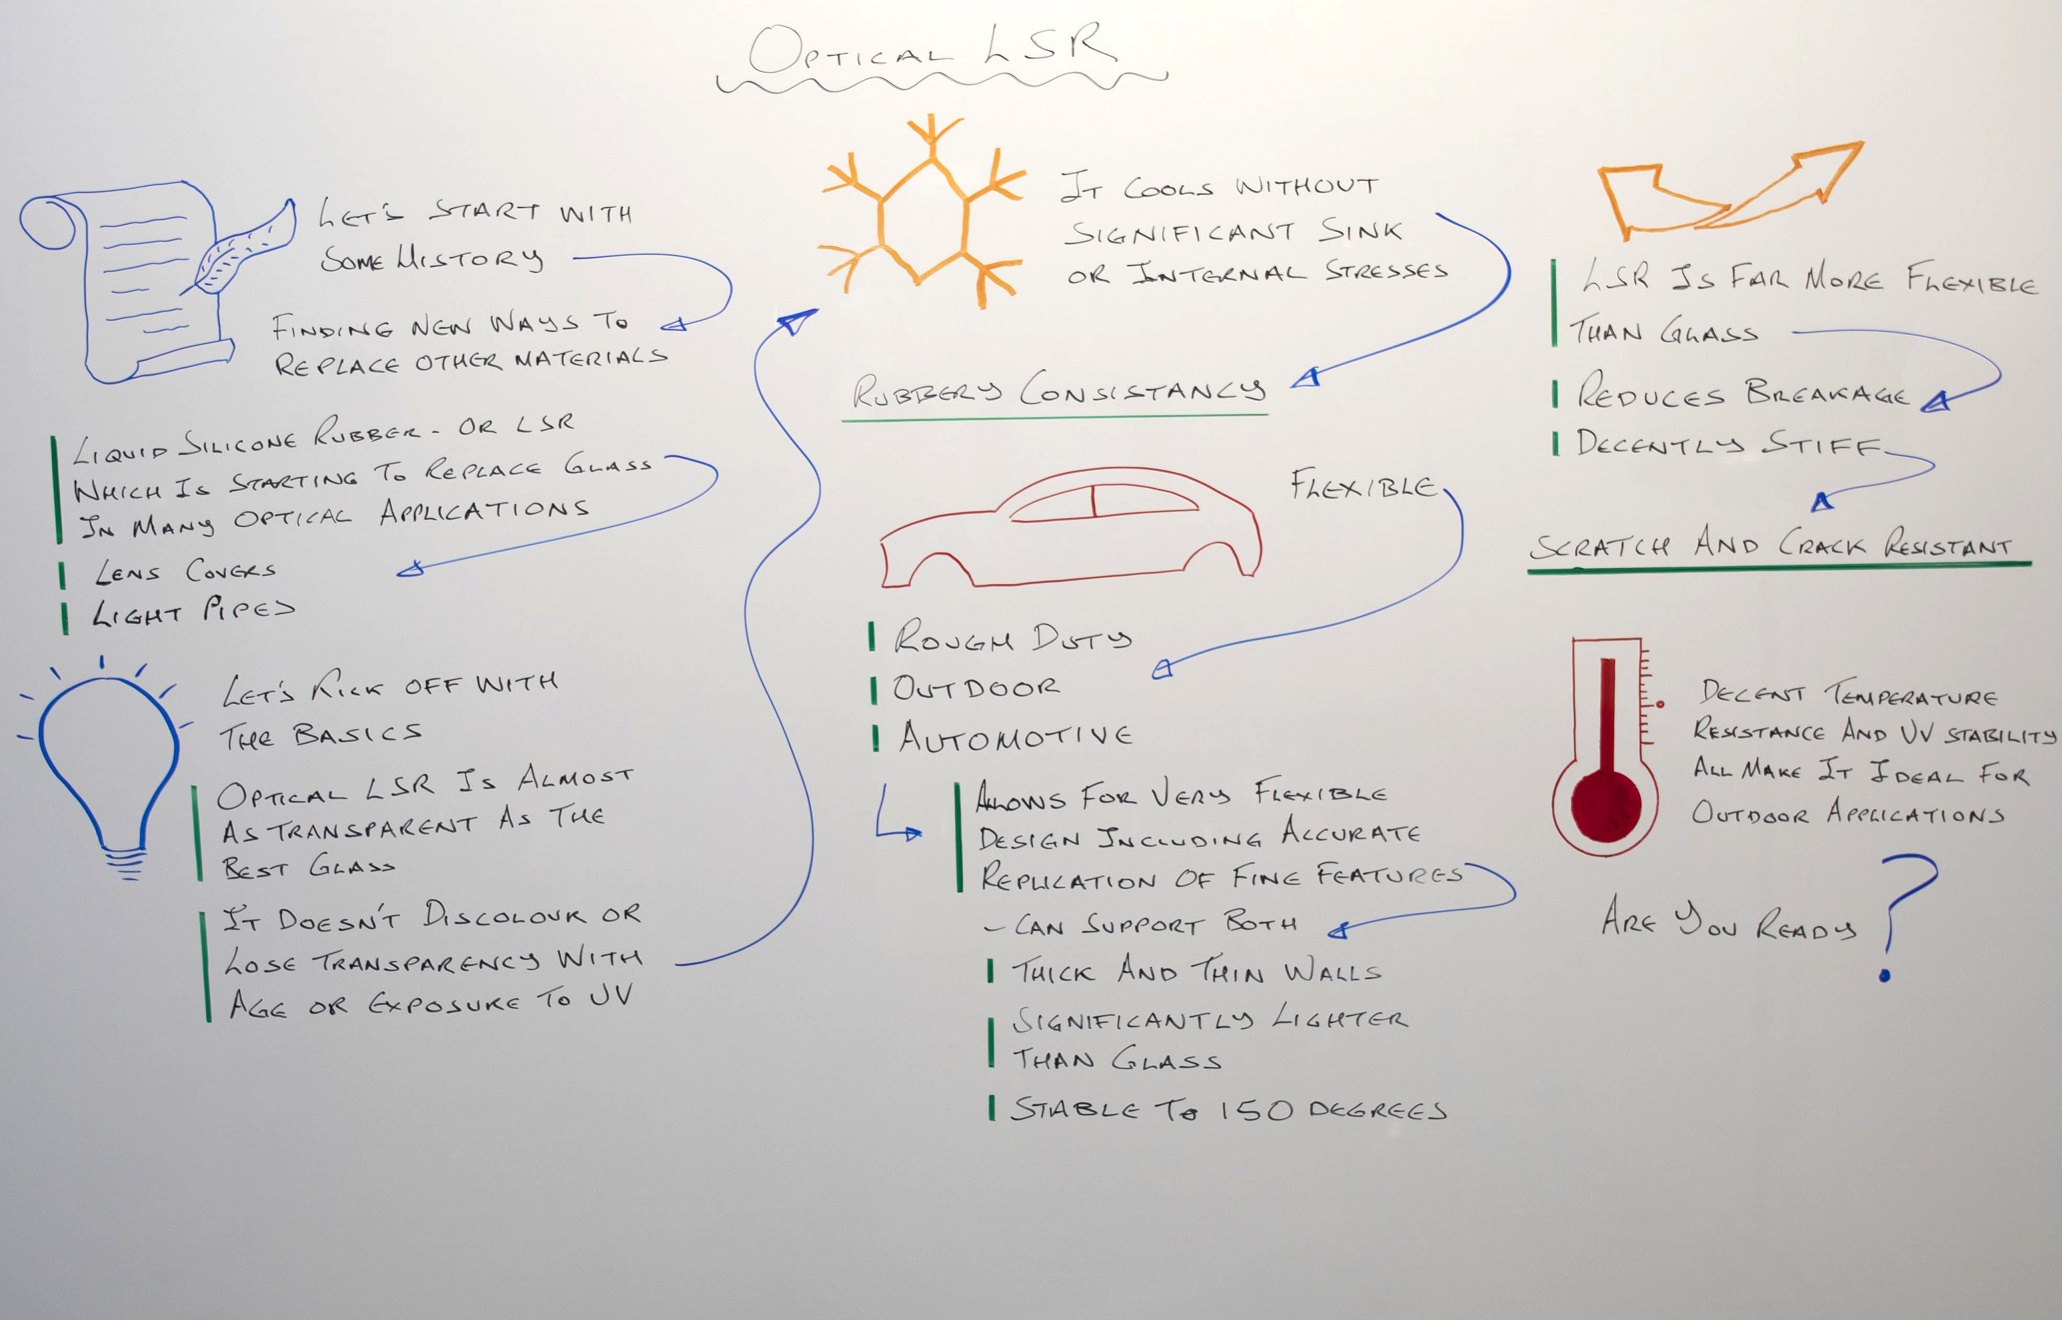 OPTICAL LSR
LET'S START WITH
SOME HISTORY
FINDING NEW WAYS TO
REPLACE OTHER MATERIALS
LIQUID SILICONE RUBBER - OR LSR
WHICH IS STARTING TO REPLACE GLASS
IN MANY OPTICAL APPLICATIONS
LENS COVERS
LIGHT PIPES
LET'S KICK OFF WITH
THE BASICS
OPTICAL LSR IS ALMOST
AS TRANSPARENT AS THE
BEST GLASS
IT DOESN'T DISCOLOUR OR
LOSE TRANSPARENCY WITH
AGE OR EXPOSURE TO UV
IT COOLS WITHOUT
SIGNIFICANT SINK
OR INTERNAL STRESSES
RUBBERY CONSISTANCY
FLEXIBLE
ROUGH DUTY
OUTDOOR
AUTOMOTIVE
ALLOWS FOR VERY FLEXIBLE
DESIGN INCLUDING ACCURATE
REPLICATION OF FINE FEATURES
- CAN SUPPORT BOTH
THICK AND THIN WALLS
SIGNIFICANTLY LIGHTER
THAN GLASS
STABLE TO 150 DEGREES
LSR IS FAR MORE FLEXIBLE
THAN GLASS
REDUCES BREAKAGE
DECENTLY STIFF
SCRATCH AND CRACK RESISTANT
DECENT TEMPERATURE
RESISTANCE AND UV STABILITY
ALL MAKE IT IDEAL FOR
OUTDOOR APPLICATIONS
ARE YOU READY ?